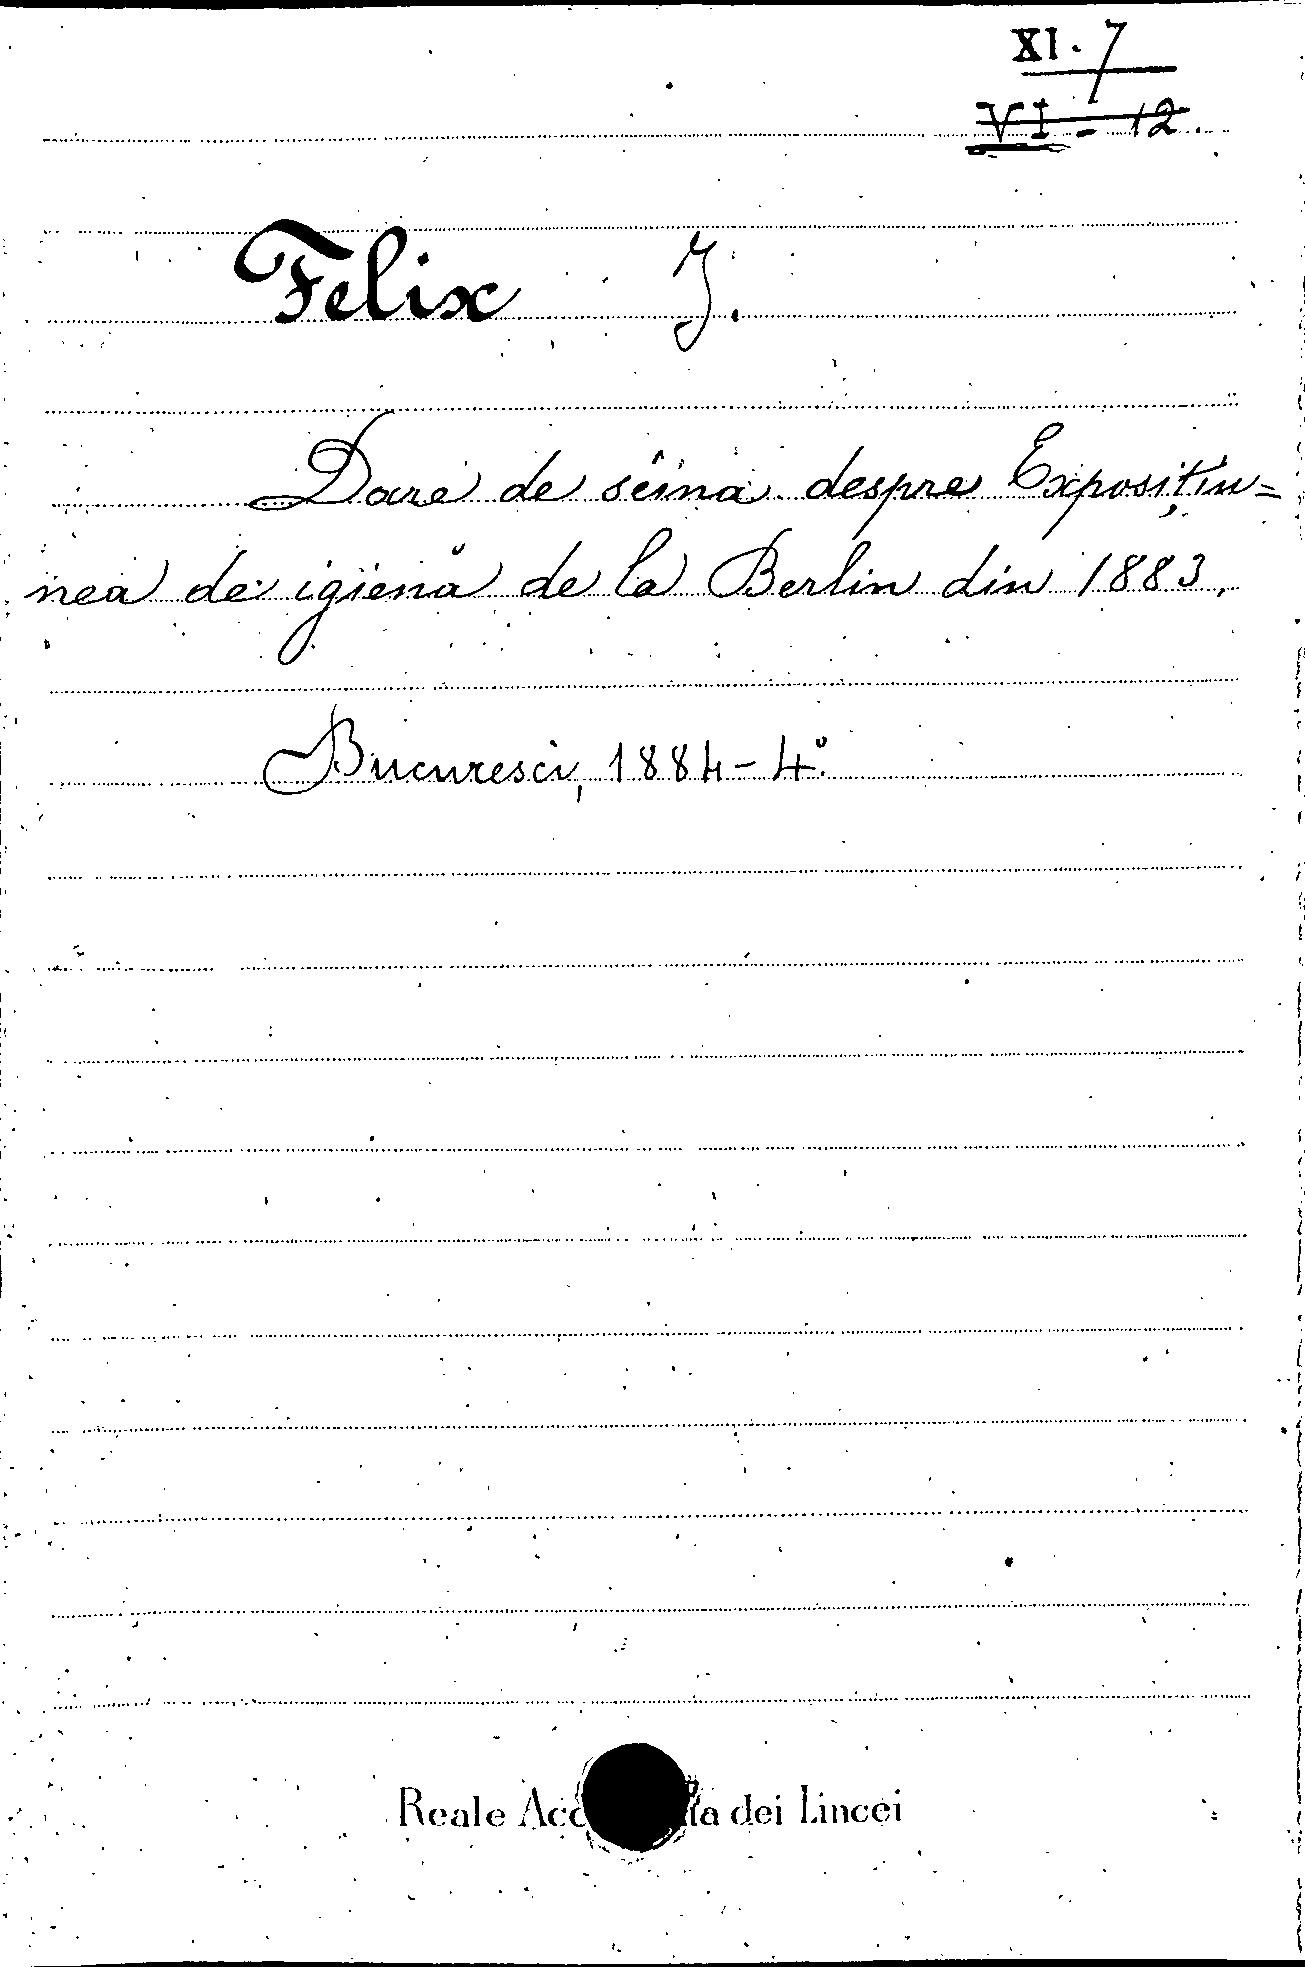 XI. 7
VI - 12.
Felix J.
Dare de séina despre Exposiţiu=
nea de igienă de la Berlin din 1883.
Bucuresci, 1884 - 4°.
Reale Acc ia dei Lincei